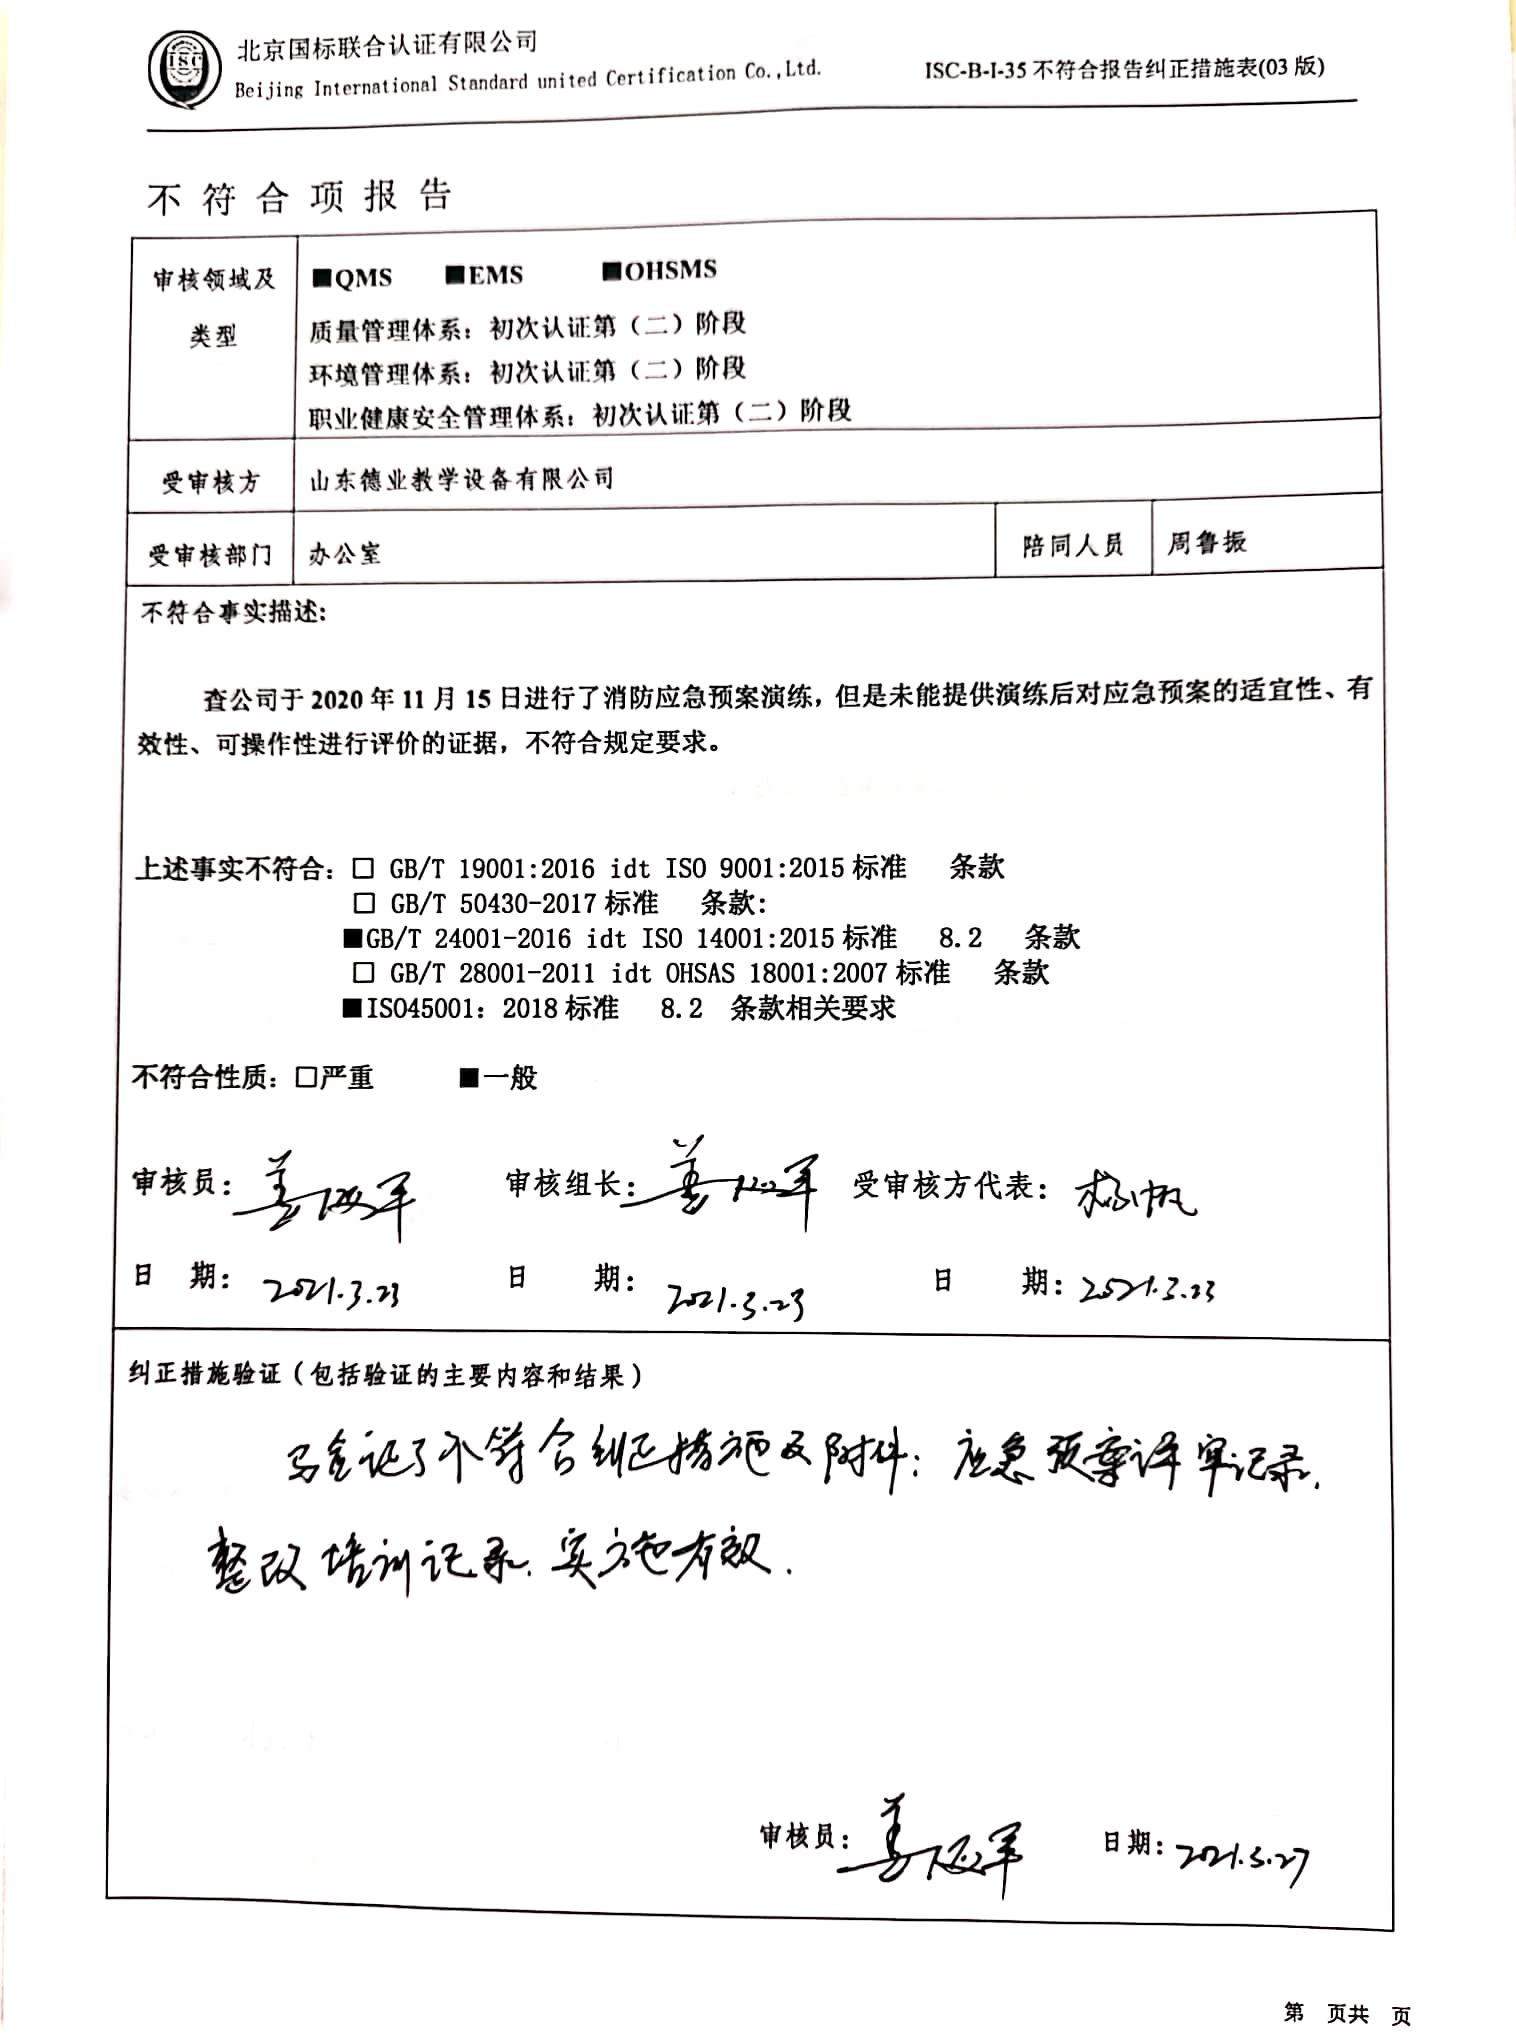 ISC
北京国标联合认证有限公司
Beijing International Standard united Certification Co.,Ltd.
ISC-B-I-35 不符合报告纠正措施表(03 版)
不符合项报告
审核领域及
类型
■QMS ■EMS ■OHSMS
质量管理体系：初次认证第（二）阶段
环境管理体系：初次认证第（二）阶段
职业健康安全管理体系：初次认证第（二）阶段
受审核方 山东德业教学设备有限公司
受审核部门 办公室 陪同人员 周鲁振
不符合事实描述:
查公司于 2020 年 11 月 15 日进行了消防应急预案演练，但是未能提供演练后对应急预案的适宜性、有
效性、可操作性进行评价的证据，不符合规定要求。
上述事实不符合：□ GB/T 19001:2016 idt ISO 9001:2015 标准 条款
□ GB/T 50430-2017 标准 条款：
■GB/T 24001-2016 idt ISO 14001:2015 标准 8.2 条款
□ GB/T 28001-2011 idt OHSAS 18001:2007 标准 条款
■ISO45001：2018 标准 8.2 条款相关要求
不符合性质：□严重 ■一般
审核员： 审核组长： 受审核方代表：杨帆
日 期：2021.3.23 日 期：2021.3.23 日 期：2021.3.23
纠正措施验证（包括验证的主要内容和结果）
验证了不符合纠正措施及附件：应急预案评审记录，
整改培训记录，实施有效．
审核员： 日期：2021.3.27
第 页共 页